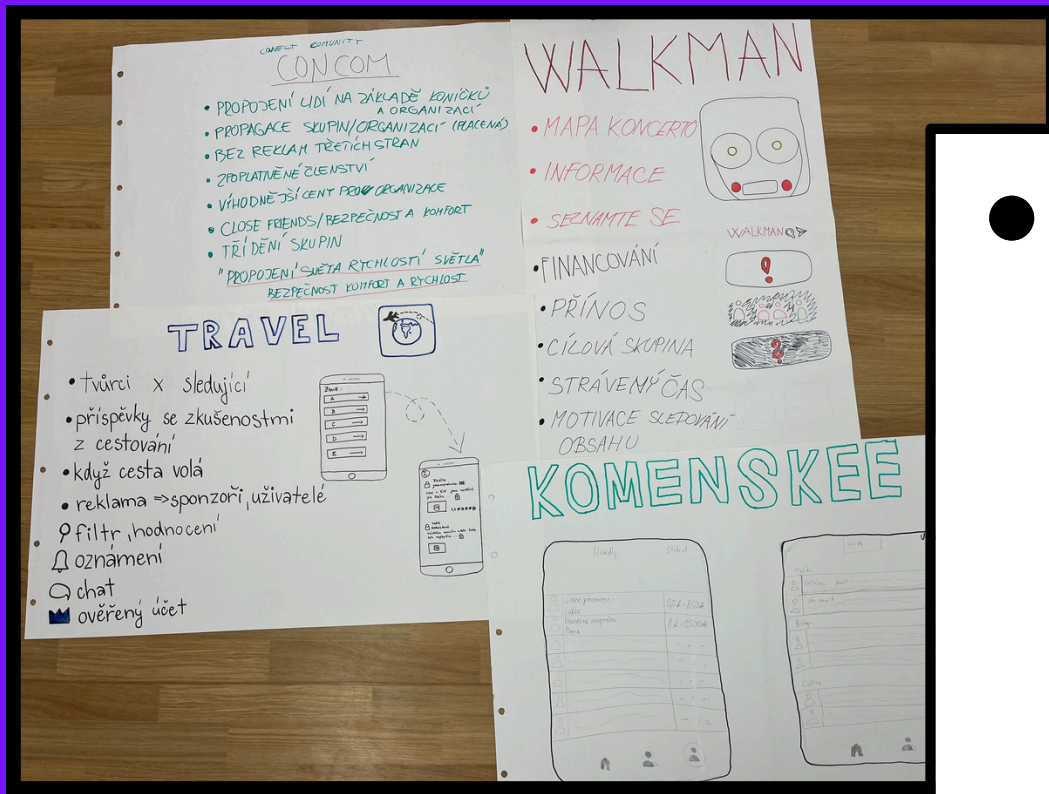 CONECT KOMUNITY
CONCOM
• PROPOJENÍ LIDÍ NA ZÁKLADĚ KONÍČKŮ
A ORGANIZACÍ
• PROPAGACE SKUPIN/ORGANIZACÍ (PLACENÁ)
• BEZ REKLAM TŘETÍCH STRAN
• ZPOPLATNĚNÉ ČLENSTVÍ
• VÍHODNĚJŠÍ CENY PRO ORGANIZACE
• CLOSE FRIENDS/BEZPEČNOST A KOMFORT
• TŘÍDĚNÍ SKUPIN
"PROPOJENÍ SVĚTA RYCHLOSTÍ SVĚTLA"
BEZPEČNOST KOMFORT A RYCHLOST
WALKMAN
• MAPA KONCERTŮ
• INFORMACE
• SEZNAMTE SE
• FINANCOVÁNÍ
• PŘÍNOS
• CÍLOVÁ SKUPINA
• STRÁVENÝ ČAS
• MOTIVACE SLEDOVÁNÍ
OBSAHU
WALKMAN
!
?
TRAVEL
• tvůrci x sledující
• příspěvky se zkušenostmi
z cestování
• když cesta volá
• reklama => sponzoři, uživatelé
filtr, hodnocení
oznámení
chat
ověřený účet
A
B
C
D
E
KOMENSKEE